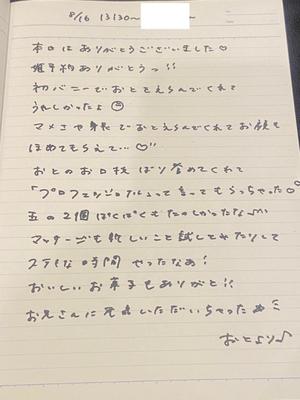 8/16 13:30〜
本日はありがとうございました♡
姫予約ありがとうっ!!
初バニーでおとをえらんでくれて
うれしかったよ
マメさや身長でおとえらんでくれてお顔も
ほめてもらえて…♡
おとのお口技ばり誉めてくれて
「プロフェッショナル」って言ってもらっちゃった
玉の2個ぱくぱくもたのしかったな♪
マッサージも新しいこと試してみたりして
ステキな時間やったなぁ!
おいしいお菓子もありがと!!
お兄さんに元気いただいちゃったぁ
おとより♪